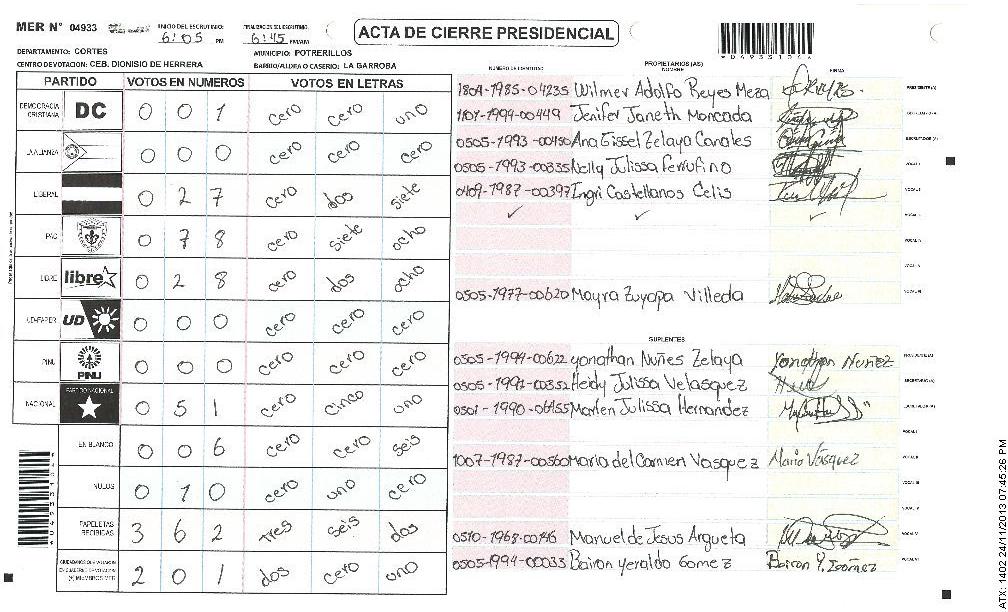 MER N° 04933
INICIO DEL ESCRUTINIO: 6:05 PM
FINALIZACION DEL ESCRUTINIO: 6:45 PM/AM
ACTA DE CIERRE PRESIDENCIAL
DEPARTAMENTO: CORTES
MUNICIPIO: POTRERILLOS
CENTRO DE VOTACION: CEB. DIONISIO DE HERRERA
BARRIO/ALDEA O CASERIO: LA GARROBA
PARTIDO VOTOS EN NUMEROS VOTOS EN LETRAS
DEMOCRACIA CRISTIANA DC 0 0 1 cero cero uno
LA ALIANZA 0 0 0 cero cero cero
LIBERAL 0 2 7 cero dos siete
PAC 0 7 8 cero siete ocho
LIBRE libre 0 2 8 cero dos ocho
UD-FAPER UD 0 0 0 cero cero cero
PINU PINU 0 0 0 cero cero cero
NACIONAL PARTIDO NACIONAL 0 5 1 cero cinco uno
EN BLANCO 0 0 6 cero cero seis
NULOS 0 1 0 cero uno cero
PAPELETAS RECIBIDAS 3 6 2 tres seis dos
CIUDADANOS QUE VOTARON
EN CUADERNO DE VOTACION
(+) MIEMBROS MER 2 0 1 dos cero uno
NUMERO DE IDENTIDAD PROPIETARIOS (AS) NOMBRE FIRMA
1809-1985-04235 Wilmer Adolfo Reyes Meza PRESIDENTE (A)
1807-1994-00449 Jenifer Janeth Moncada
0505-1993-00450 Ana Gissel Zelaya Canales ESCRUTADOR (A)
0505-1993-00335 Kelly Julissa Ferrufino VOCAL I
0409-1987-00397 Ingri Castellanos Celis VOCAL II
0505-1977-00620 Mayra Zuyapa Villeda
SUPLENTES
0505-1994-00622 Yonathan Nuñes Zelaya Yonathan Nuñez PRESIDENTE (A)
0505-1991-00352 Heidy Julissa Velasquez SECRETARIO (A)
0501-1990-06155 Marlen Julissa Hernandez
1007-1987-00560 Maria del Carmen Vasquez Maria Vásquez
0510-1968-00146 Manuel de Jesus Argueta
0505-1994-00033 Bairon Yeraldo Gomez Bairon Y. Gomez
ATX: 1402 24/11/2013 07:45:26 PM